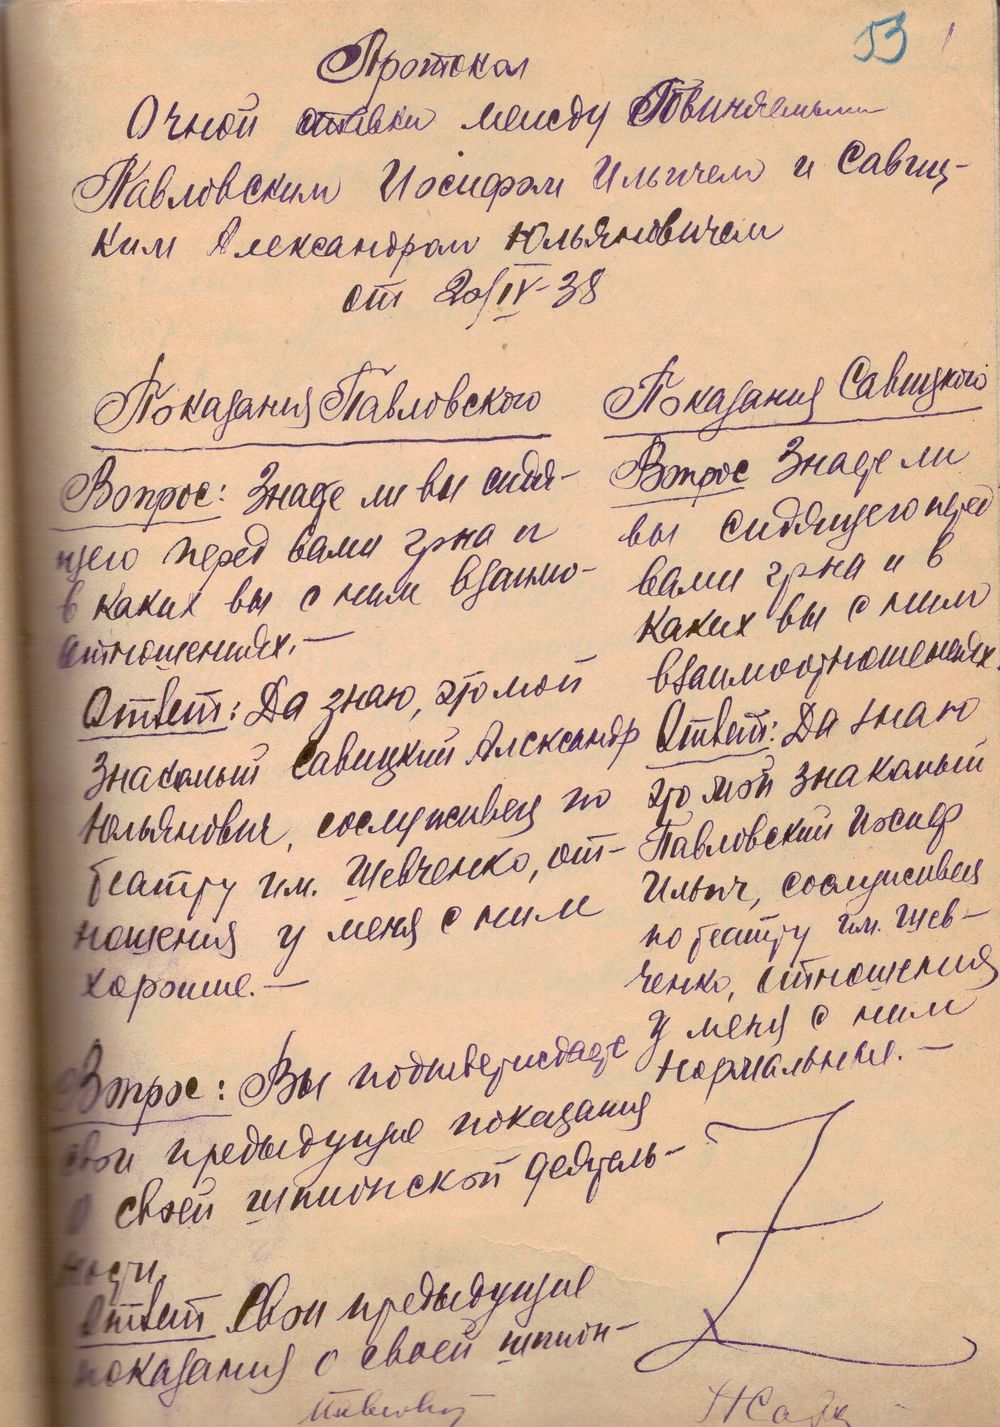 53
Протокол
Очной ставки между Обвиняемыми
Павловским Иосифом Ильичем и Савиц-
ким Александром Юльяновичем
от 20/IV-38
Показания Павловского
Вопрос: Знаете ли вы сидя-
щего перед вами гр-на и
в каких вы с ним взаимо-
отношениях.—
Ответ: Да знаю, это мой
знакомый Савицкий Александр
Юльянович, сослуживец по
театру им. Шевченко, от-
ношения у меня с ним
хорошие.—
Вопрос: Вы подтверждаете
свои предыдущие показания
о своей шпионской деятель-
ности.
Ответ Свои предыдущие
показания о своей шпион-
Показания Савицкого
Вопрос Знаете ли
вы сидящего перед
вами гр-на и в
каких вы с ним
взаимоотношениях.
Ответ: Да знаю
это мой знакомый
Павловский Иосиф
Ильич, сослуживец
по театру им. Шев-
ченко, отношения
у меня с ним
нормальные.—